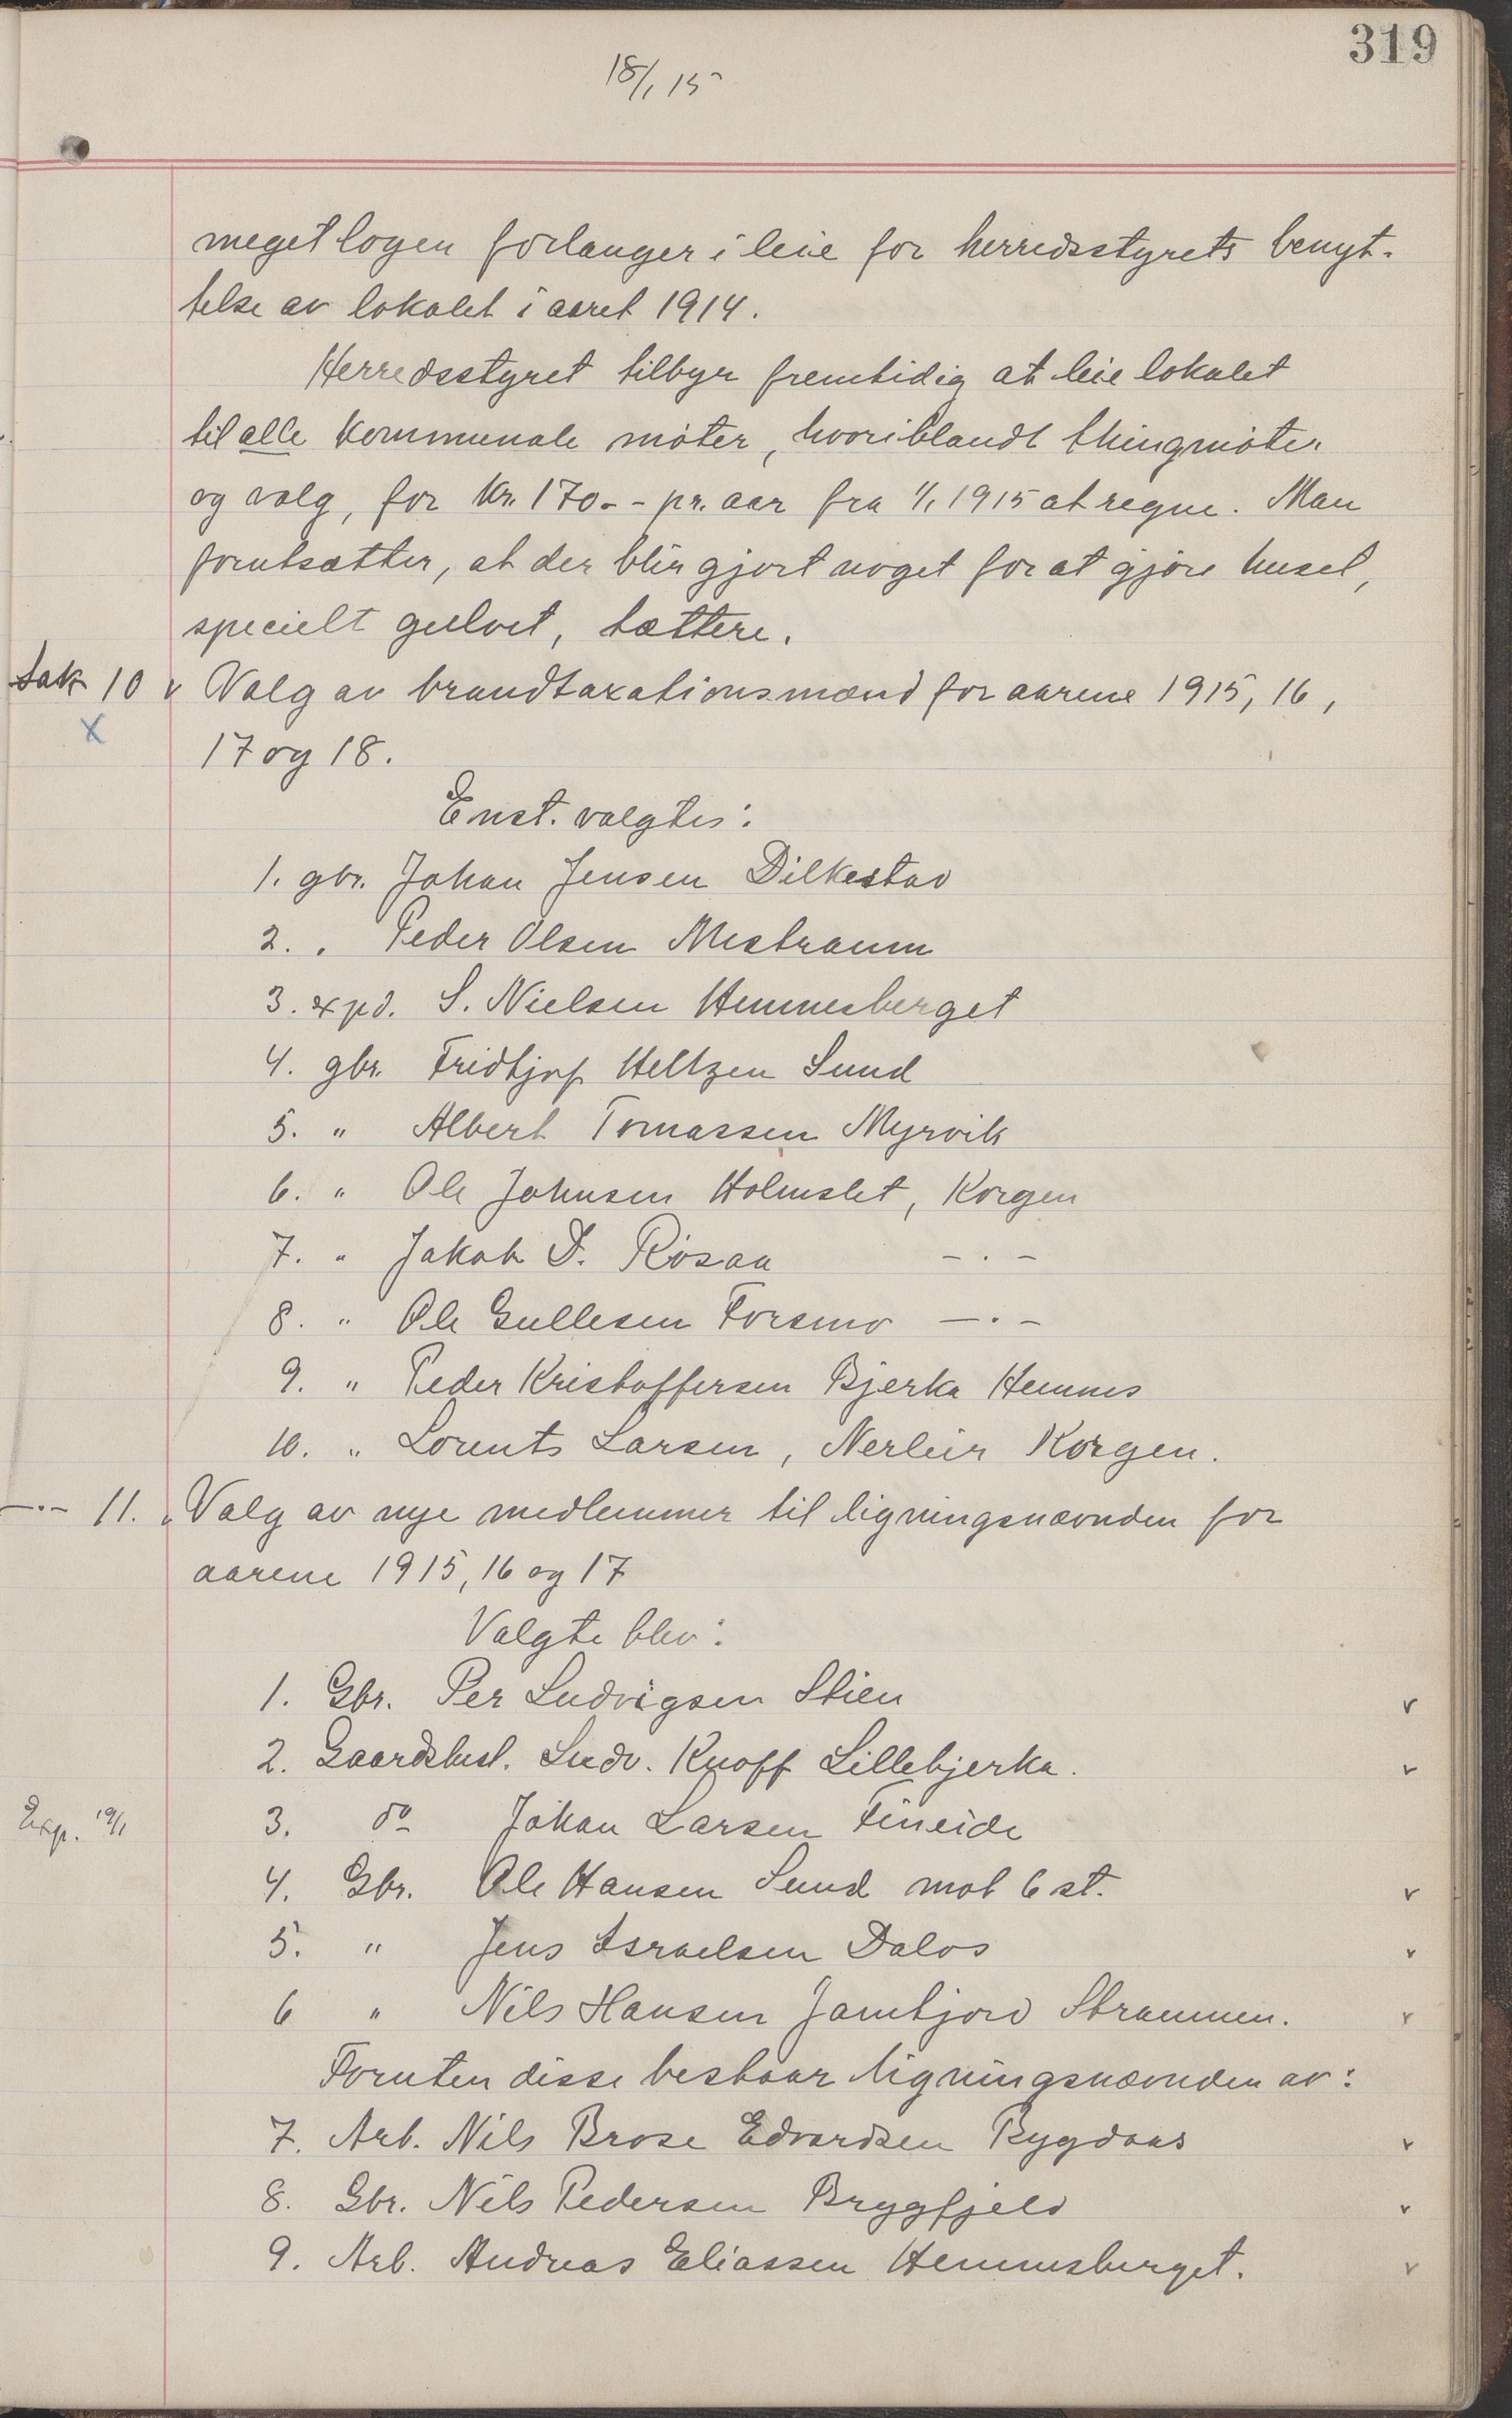 319
18/1 15
meget logen forlanger i leie for herredsstyrets benyt-
telse av lokalet i aaret 1914.
Herredsstyret tilbyr fremtidig at leie lokalet
til alle kommunale møter, hvoriblandt thingmøter
og valg, for kr. 170.- pr. aar fra 1/1 1915 at regne. Man
forutsætter, at der blir gjort noget for at gjøre huset,
specielt gulvet, tættere.
Sak 10 v Valg av brandtaxationsmænd for aarene 1915, 16,
x 17 og 18.
Enst. valgtes:
1. gbr. Johan Jensen Dilkestad
2. " Peder Olsen Mestraum
3. expd. S. Nielsen Hemnesberget
4. gbr. Fridtjof Heltzen Sund
5. " Albert Tomassen Myrvik
6. " Ole Johnsen Holmslet, Korgen
7. " Jakob D. Røsaa -"-
8. " Ole Gullesen Forsmo -"-
9. " Peder Kristoffersen Bjerka Hemnes
10. " Lorents Larsen, Nerleir Korgen.
-"- 11. Valg av nye medlemmer til ligningsnævnden for
aarene 1915, 16 og 17
Valgte blev:
1. Gbr. Per Ludvigsen Stien v
2. Gaardbest. Ludv. Knoff Lillebjerka. v
Exp. 19/1 3. do Johan Larsen Fineide
4. Gbr. Ole Hansen Sund mot 6 st. v
5. " Jens Israelsen Dalos v
6 " Nils Hansen Jamtjord Straumen. v
Foruten disse bestaar ligningsnævnden av:
7. Arb. Nils Brose Edvardsen Bygdaas v
8. Gbr. Nils Pedersen Bryggfjeld v
9. Arb. Andreas Eliassen Hemnesberget. v